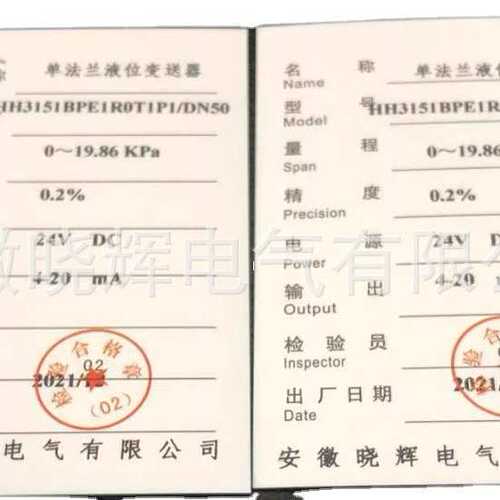 单法兰液位变送器
HH3151BPE1R0T1P1/DN50
0～19.86 KPa
0.2%
24V DC
4-20 mA
02
2021/12
检验合格章
(02)
电气有限公司
名称 单法兰液位
Name
型号 HH3151BPE1R
Model
量程 0～19.86
Span
精度 0.2%
Precision
电源 24V D
Power
输出 4-20
Output
检验员
Inspector
出厂日期 2021
Date
安徽晓辉电气
徽晓辉电气有限公